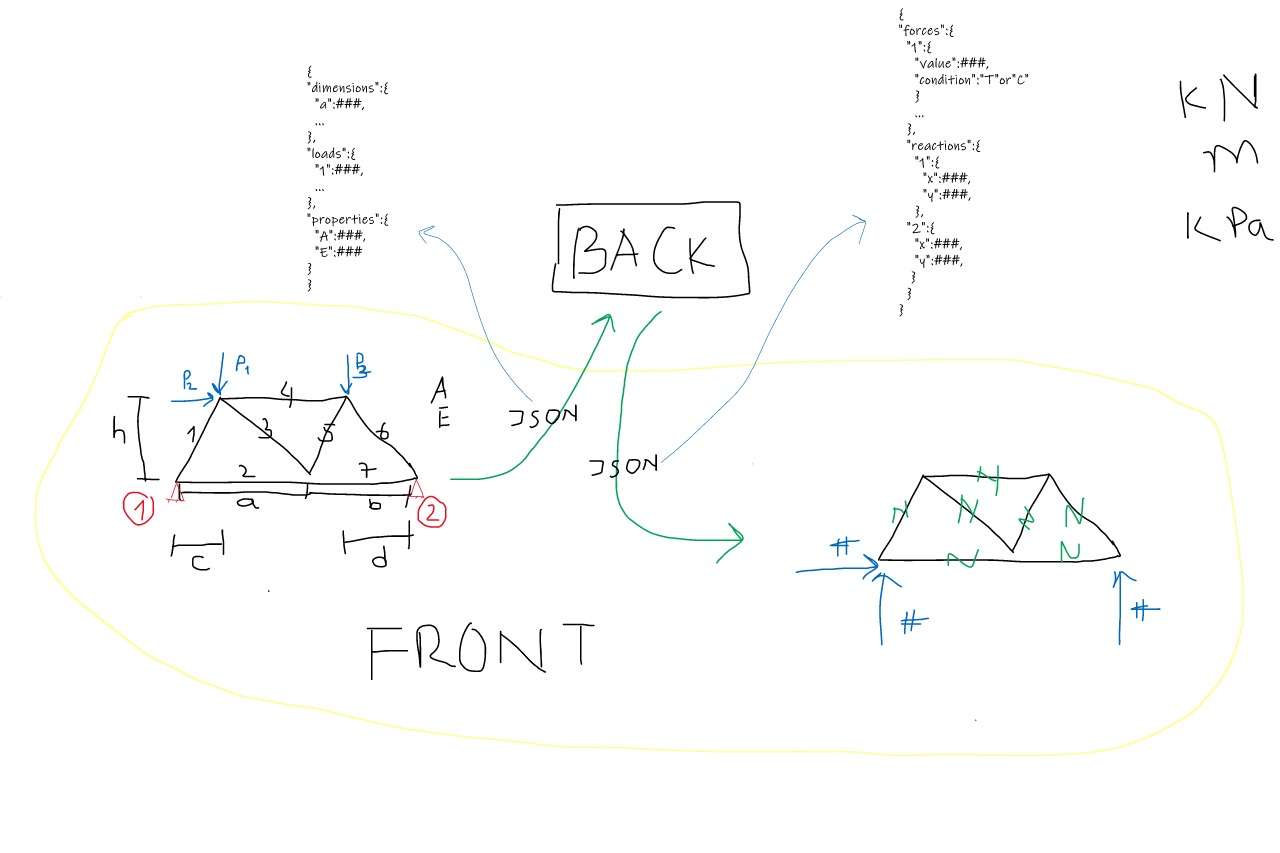 {
"dimensions":{
"a":###,
...
},
"loads":{
"1":###,
...
},
"properties":{
"A":###,
"E":###
}
}
{
"forces":{
"1":{
"value":###,
"condition":"T"or"C"
}
...
},
"reactions":{
"1":{
"x":###,
"y":###,
},
"2":{
"x":###,
"y":###,
}
}
}
KN
m
KPa
BACK
P2
P1
h
1
2
3
4
5
6
7
a
b
c
d
1
2
A
E
JSON
JSON
N
N
N
N
N
N
N
#
#
#
FRONT